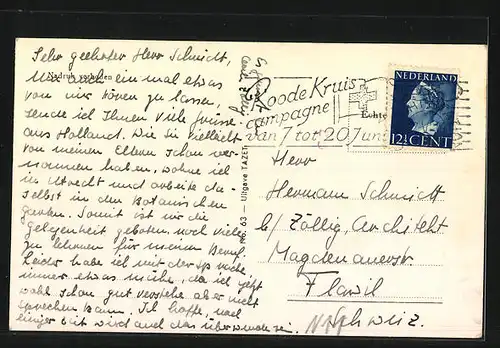 Sehr geehrter Herr Schmidt,
Um auch einmal etwas
von mir hören zu lassen,
sende ich Ihnen viele Grüsse
aus Holland. Wie Sie vielleicht
von meinen Eltern schon ver-
nommen haben, wohne ich
in Utrecht und arbeite da-
selbst in den Botanischen
Gärten. Somit ist mir die
Gelegenheit geboten noch vieles
zu lernen für meinen Beruf.
Leider habe ich mit der Sprache
immer etwas Mühe, da ich jetzt
wohl schon gut verstehe aber nicht
sprechen kann. Ich hoffe, nach
einiger Zeit wird auch das überwunden sein.
No. 63 - Uitgave TAZET
Roode Kruis
campagne
van 7 tot 20 Juni
Echte
NEDERLAND
12½ CENT
Herr
Hermann Schmidt
b/ Zöllig, Architekt
Magdenauerstr.
Flawil
Schweiz.